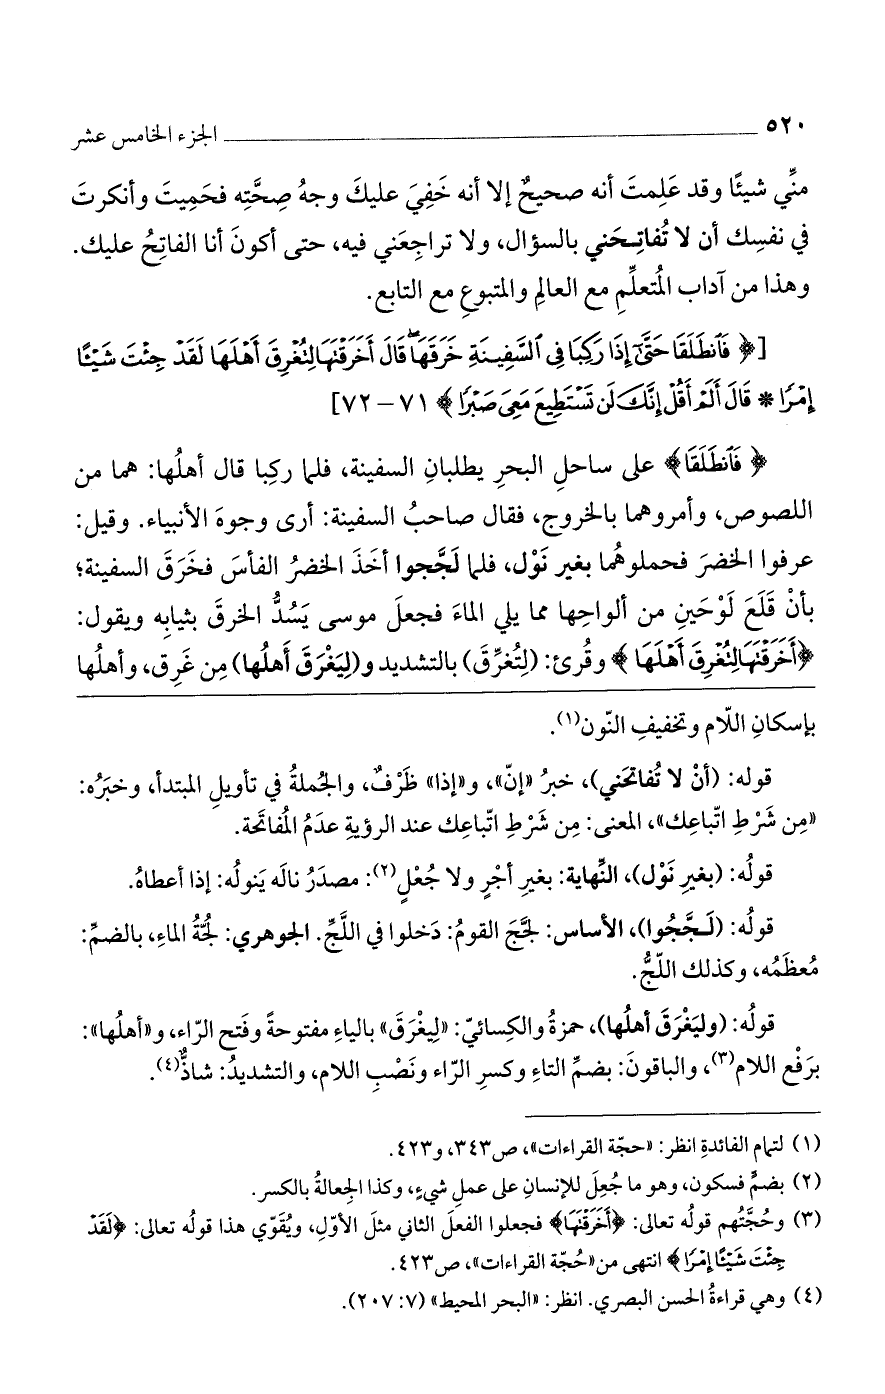 ٥٢٠ الجزء الخامس عشر
منِّي شيئًا وقد عَلِمتَ أنه صحيحٌ إلا أنه خَفِيَ عليكَ وجهُ صِحَّتِه فحَمِيتَ وأنكرتَ
في نفسِك أن لا تُفاتِحَني بالسؤال، ولا تراجِعَني فيه، حتى أكونَ أنا الفاتِحُ عليك.
وهذا من آداب المُتعلِّمِ مع العالِمِ والمتبوعِ مع التابع.
[﴿ فَٱنطَلَقَا حَتَّىٰٓ إِذَا رَكِبَا فِى ٱلسَّفِينَةِ خَرَقَهَا ۖ قَالَ أَخَرَقْتَهَا لِتُغْرِقَ أَهْلَهَا لَقَدْ جِئْتَ شَيْـًٔا
إِمْرًا * قَالَ أَلَمْ أَقُلْ إِنَّكَ لَن تَسْتَطِيعَ مَعِىَ صَبْرًا ﴾ ٧١ – ٧٢]
﴿ فَٱنطَلَقَا﴾ على ساحلِ البحرِ يطلبانِ السفينة، فلما ركِبا قال أهلُها: هما من
اللصوص، وأمروهما بالخروج، فقال صاحبُ السفينة: أرى وجوهَ الأنبياء. وقيل:
عرفوا الخضرَ فحملوهُما بغير نَوْل، فلما لَجَّجوا أخَذَ الخضرُ الفأسَ فخَرَقَ السفينة؛
بأنْ قَلَعَ لَوْحَينِ من ألواحِها مما يلي الماءَ فجعلَ موسى يَسُدُّ الخرقَ بثيابِه ويقول:
﴿أَخَرَقْتَهَا لِتُغْرِقَ أَهْلَهَا ﴾ وقُرئ: (لِتُغرِّقَ) بالتشديد و(لِيَغْرَقَ أَهلُها) مِن غَرِق، وأهلُها
بإسكانِ اللّام وتخفيفِ النّون(١).
قوله: (أنْ لا تُفاتحَني)، خبرُ «إنّ»، و«إذا» ظَرْفٌ، والجُملةُ في تأويلِ المبتدأ، وخبَرُه:
«مِن شَرْطِ اتّباعِك»، المعنى: مِن شَرْطِ اتّباعِك عند الرؤيةِ عدَمُ المُفاتَحة.
قولُه: (بغيرِ نَوْل)، النِّهاية: بغيرِ أجْرٍ ولا جُعْلٍ(٢): مصدَرُ نالَه يَنولُه: إذا أعطاهُ.
قولُه: (لَـجَّجُوا)، الأساس: لجَّجَ القومُ: دَخلوا في اللَّجِّ. الجوهري: لُجّةُ الماءِ، بالضمِّ:
مُعظَمُه، وكذلك اللّجُّ.
قولُه: (وليَغْرَقَ أهلُها)، حمزةُ والكِسائيّ: «لِيغْرَقَ» بالياءِ مفتوحةً وفَتح الرّاء، و«أهلُها»:
برَفْع اللام(٣)، والباقونَ: بضمِّ التاءِ وكسرِ الرّاء ونَصْبِ اللام، والتشديدُ: شاذٌّ(٤).
(١) لتمام الفائدةِ انظر: «حجّة القراءات»، ص٣٤٣، و٤٢٣.
(٢) بضمٍّ فسكون، وهو ما جُعِلَ للإنسانِ على عملِ شيءٍ، وكذا الجِعالةُ بالكسر.
(٣) وحُجَّتُهم قولُه تعالى: ﴿أَخَرَقْتَهَا﴾ فجعلوا الفعلَ الثاني مثلَ الأوّلِ، ويُقَوّي هذا قولُه تعالى: ﴿لَقَدْ
جِئْتَ شَيْئًا إِمْرًا ﴾ انتهى من«حُجّة القراءات»، ص٤٢٣.
(٤) وهي قراءةُ الحسن البصري. انظر: «البحر المحيط» (٧: ٢٠٧).